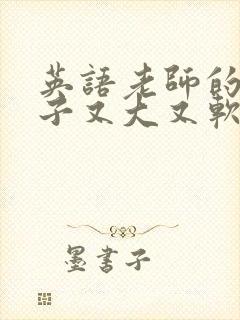 英語老師的
子又大又軟
墨書子